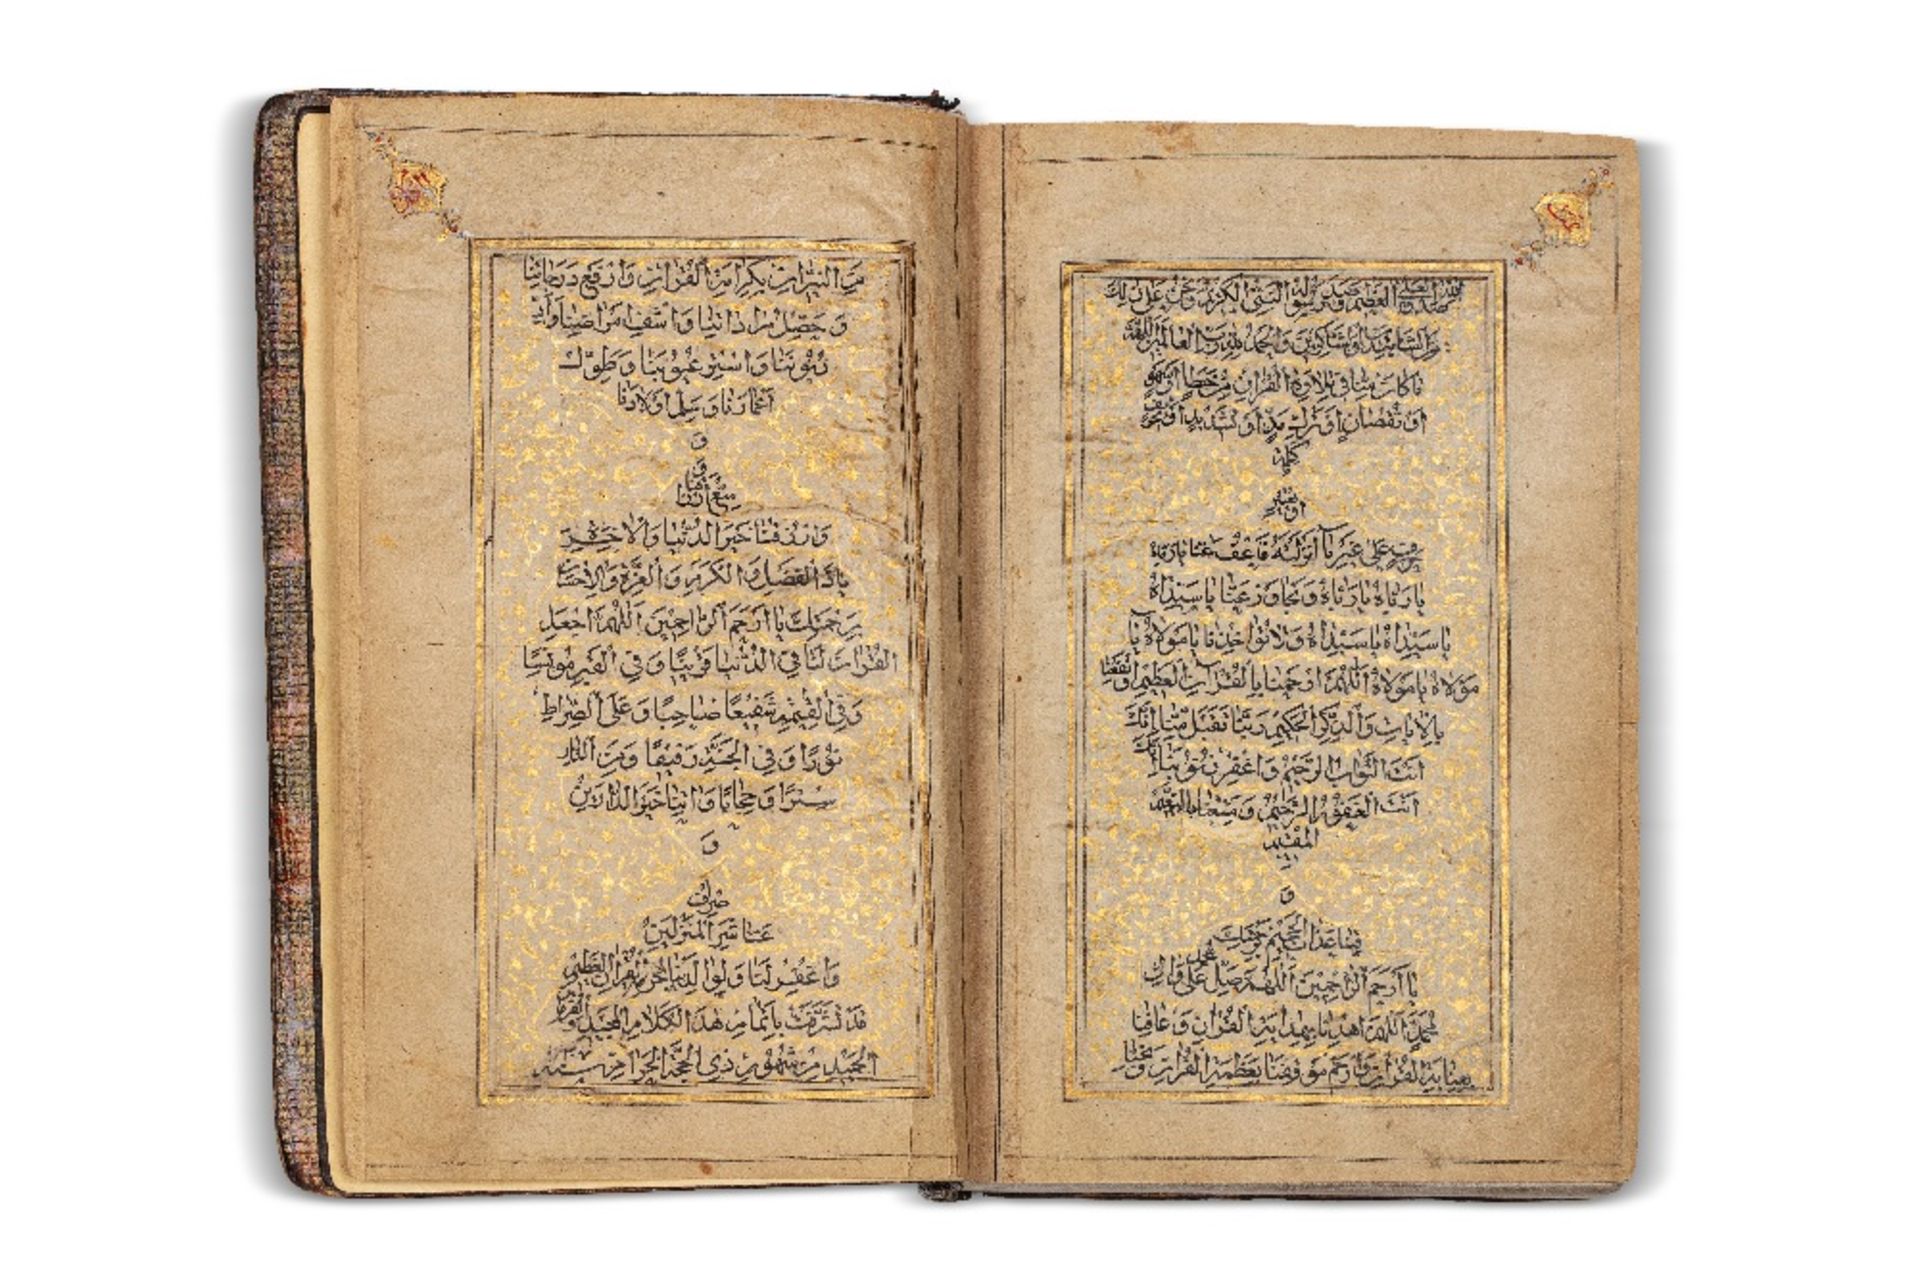 صدق الله العلي العظيم وصدق رسوله النبي الكريم ونحن على ذلك
من الشاهدين والشاكرين والحمد لله رب العالمين اللهم
ما كان منا في تلاوة القرآن من خطإ أو سهو
أو نقصان أو ترك مد أو تشديد أو
كلمة
أو تغيير
حروف على غير ما أنزلته فاعف عنا يا رباه
يا رباه يا رباه وتجاوز عنا يا سيداه
يا سيداه يا سيداه ولا تؤاخذنا يا مولاه يا
مولاه يا مولاه اللهم ارحمنا بالقرآن العظيم وانفعنا
بالآيات والذكر الحكيم ربنا تقبل منا إنك
أنت التواب الرحيم واغفر ذنوبنا إنك
أنت الغفور الرحيم ومتعنا بالنعيم
المقيم
و
قنا عذاب الجحيم برحمتك
يا أرحم الراحمين اللهم صل على محمد وآل
محمد اللهم اهدنا بهداية القرآن وعافنا
بعناية القرآن وارحم موقفنا بعظمة القرآن ونجنا
من النيران بكرامة القرآن وارفع درجاتنا
وحصل مراداتنا واشف مرضانا و
ذنوبنا واستر عيوبنا وطول
أعمارنا وسلم أولادنا
و
و
وارزقنا خير الدنيا والآخرة
يا ذا الفضل والكرم والعزة والإحسان
برحمتك يا أرحم الراحمين اللهم اجعل
القرآن لنا في الدنيا قرينا وفي القبر مونسا
وفي القيمة شفيعا صاحبا وعلى الصراط
نورا وفي الجنة رفيقا ومن النار
سترا وحجابا وآتنا خير الدارين
و
اصرف
عنا شر المنزلين
واغفر لنا ولوالدينا بحرمة القرآن العظيم
قد تشرفت بإتمام هذا الكلام المجيد والفرقان
الحميد من شهور ذي الحجة الحرام سنة